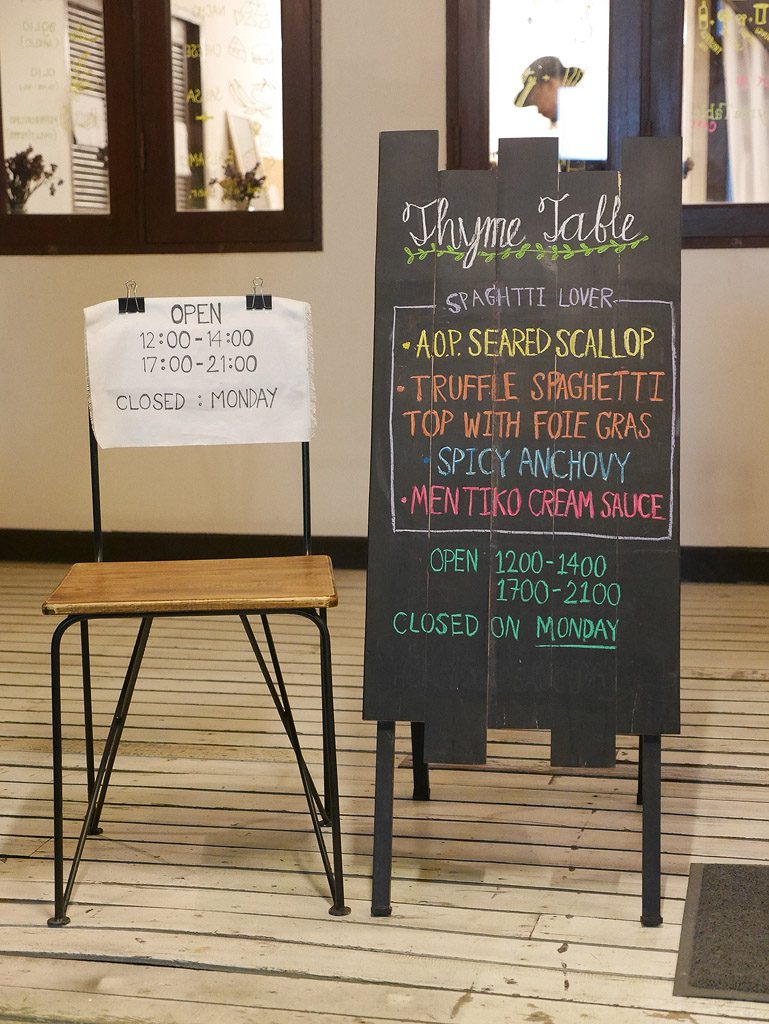 OPEN
12:00-14:00
17:00-21:00
CLOSED : MONDAY
Thyme Table
SPAGHTTI LOVER
• A.O.P. SEARED SCALLOP
• TRUFFLE SPAGHETTI
TOP WITH FOIE GRAS
• SPICY ANCHOVY
• MENTIKO CREAM SAUCE
OPEN 1200-1400
1700-2100
CLOSED ON MONDAY